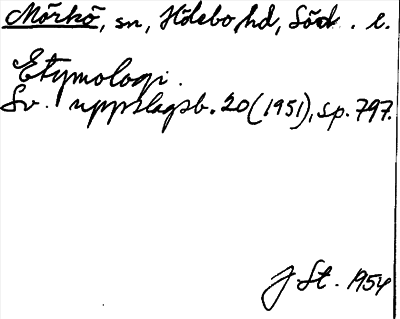 Mörkö, sn, Hölebo hd, Söd. l.
Etymologi.
Sv. uppslagsb. 20 (1951), sp. 797.
J St. 1954